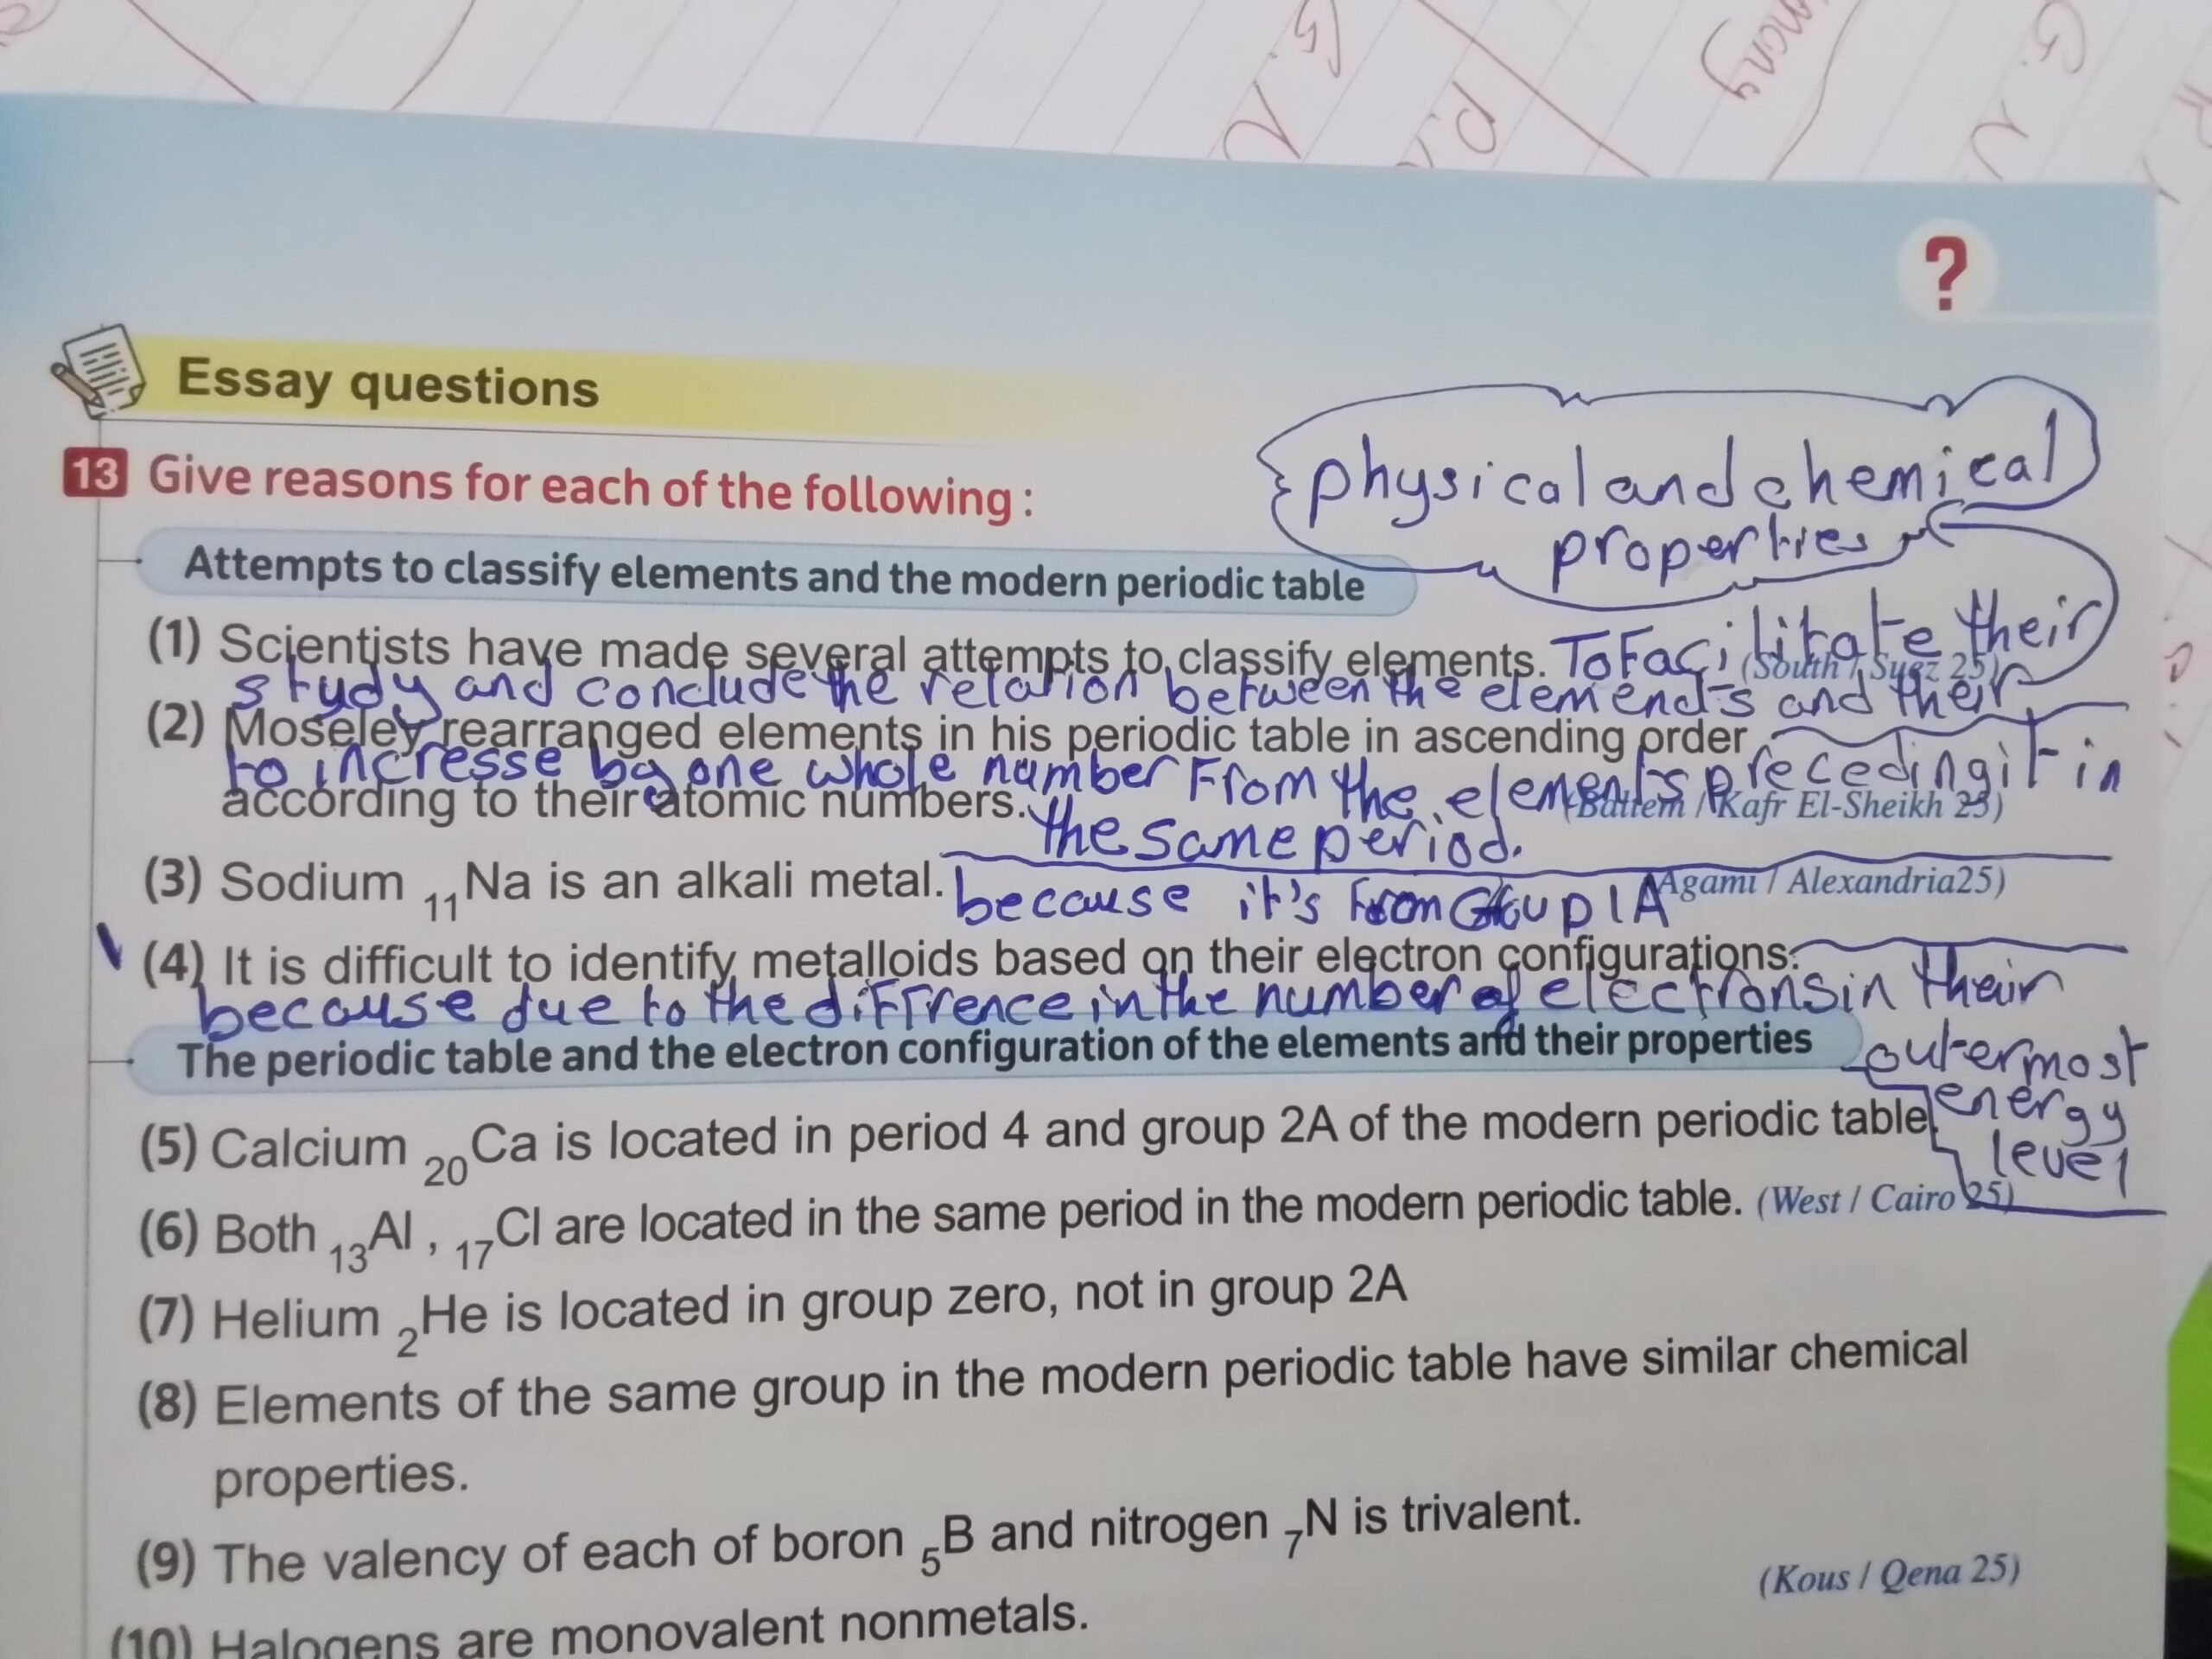 G.N
P.N
many
G.N
?
Essay questions
13 Give reasons for each of the following :
physical and chemical
properties
Attempts to classify elements and the modern periodic table
(1) Scientists have made several attempts to classify elements. To Facilitate their
(South / Suez 25)
study and conclude the relation between the elemends and their
(2) Moseley rearranged elements in his periodic table in ascending order
to incresse by one whole number From the elements preceding it in
according to their atomic numbers. (Baltem / Kafr El-Sheikh 25)
the same period.
(3) Sodium 11Na is an alkali metal. (Agami / Alexandria25)
because it's From Group 1A
(4) It is difficult to identify metalloids based on their electron configurations.
because due to the diffrence in the number of electrons in their
outermost
energy
level
The periodic table and the electron configuration of the elements and their properties
(5) Calcium 20Ca is located in period 4 and group 2A of the modern periodic table.
(6) Both 13Al , 17Cl are located in the same period in the modern periodic table. (West / Cairo 25)
(7) Helium 2He is located in group zero, not in group 2A
(8) Elements of the same group in the modern periodic table have similar chemical
properties.
(9) The valency of each of boron 5B and nitrogen 7N is trivalent.
(Kous / Qena 25)
(10) Halogens are monovalent nonmetals.